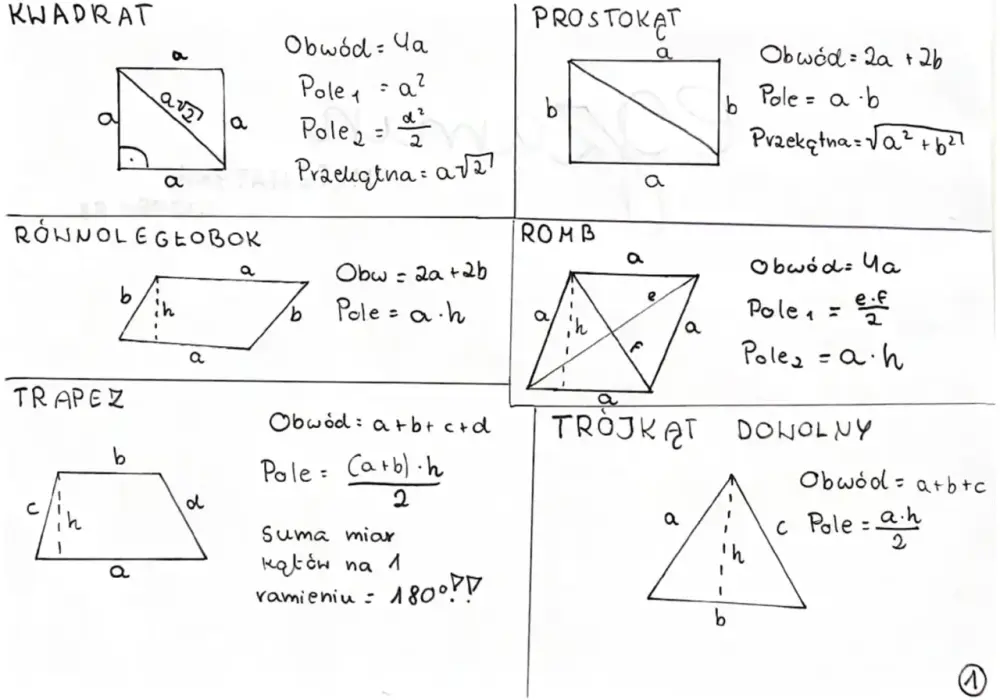 KWADRAT
a
a
a√2
a
a
Obwód = 4a
Pole₁ = a²
Pole₂ = d²/2
Przekątna = a√2
PROSTOKĄT
a
b
b
a
Obwód = 2a + 2b
Pole = a · b
Przekątna = √a² + b²
RÓWNOLEGŁOBOK
a
b
h
b
a
Obw = 2a + 2b
Pole = a · h
ROMB
a
a
e
h
f
a
a
Obwód = 4a
Pole₁ = e·f/2
Pole₂ = a · h
TRAPEZ
b
c
h
d
a
Obwód = a + b + c + d
Pole = (a+b) · h/2
Suma miar
kątów na 1
ramieniu = 180°!!
TRÓJKĄT DOWOLNY
a
c
h
b
Obwód = a+b+c
Pole = a·h/2
1